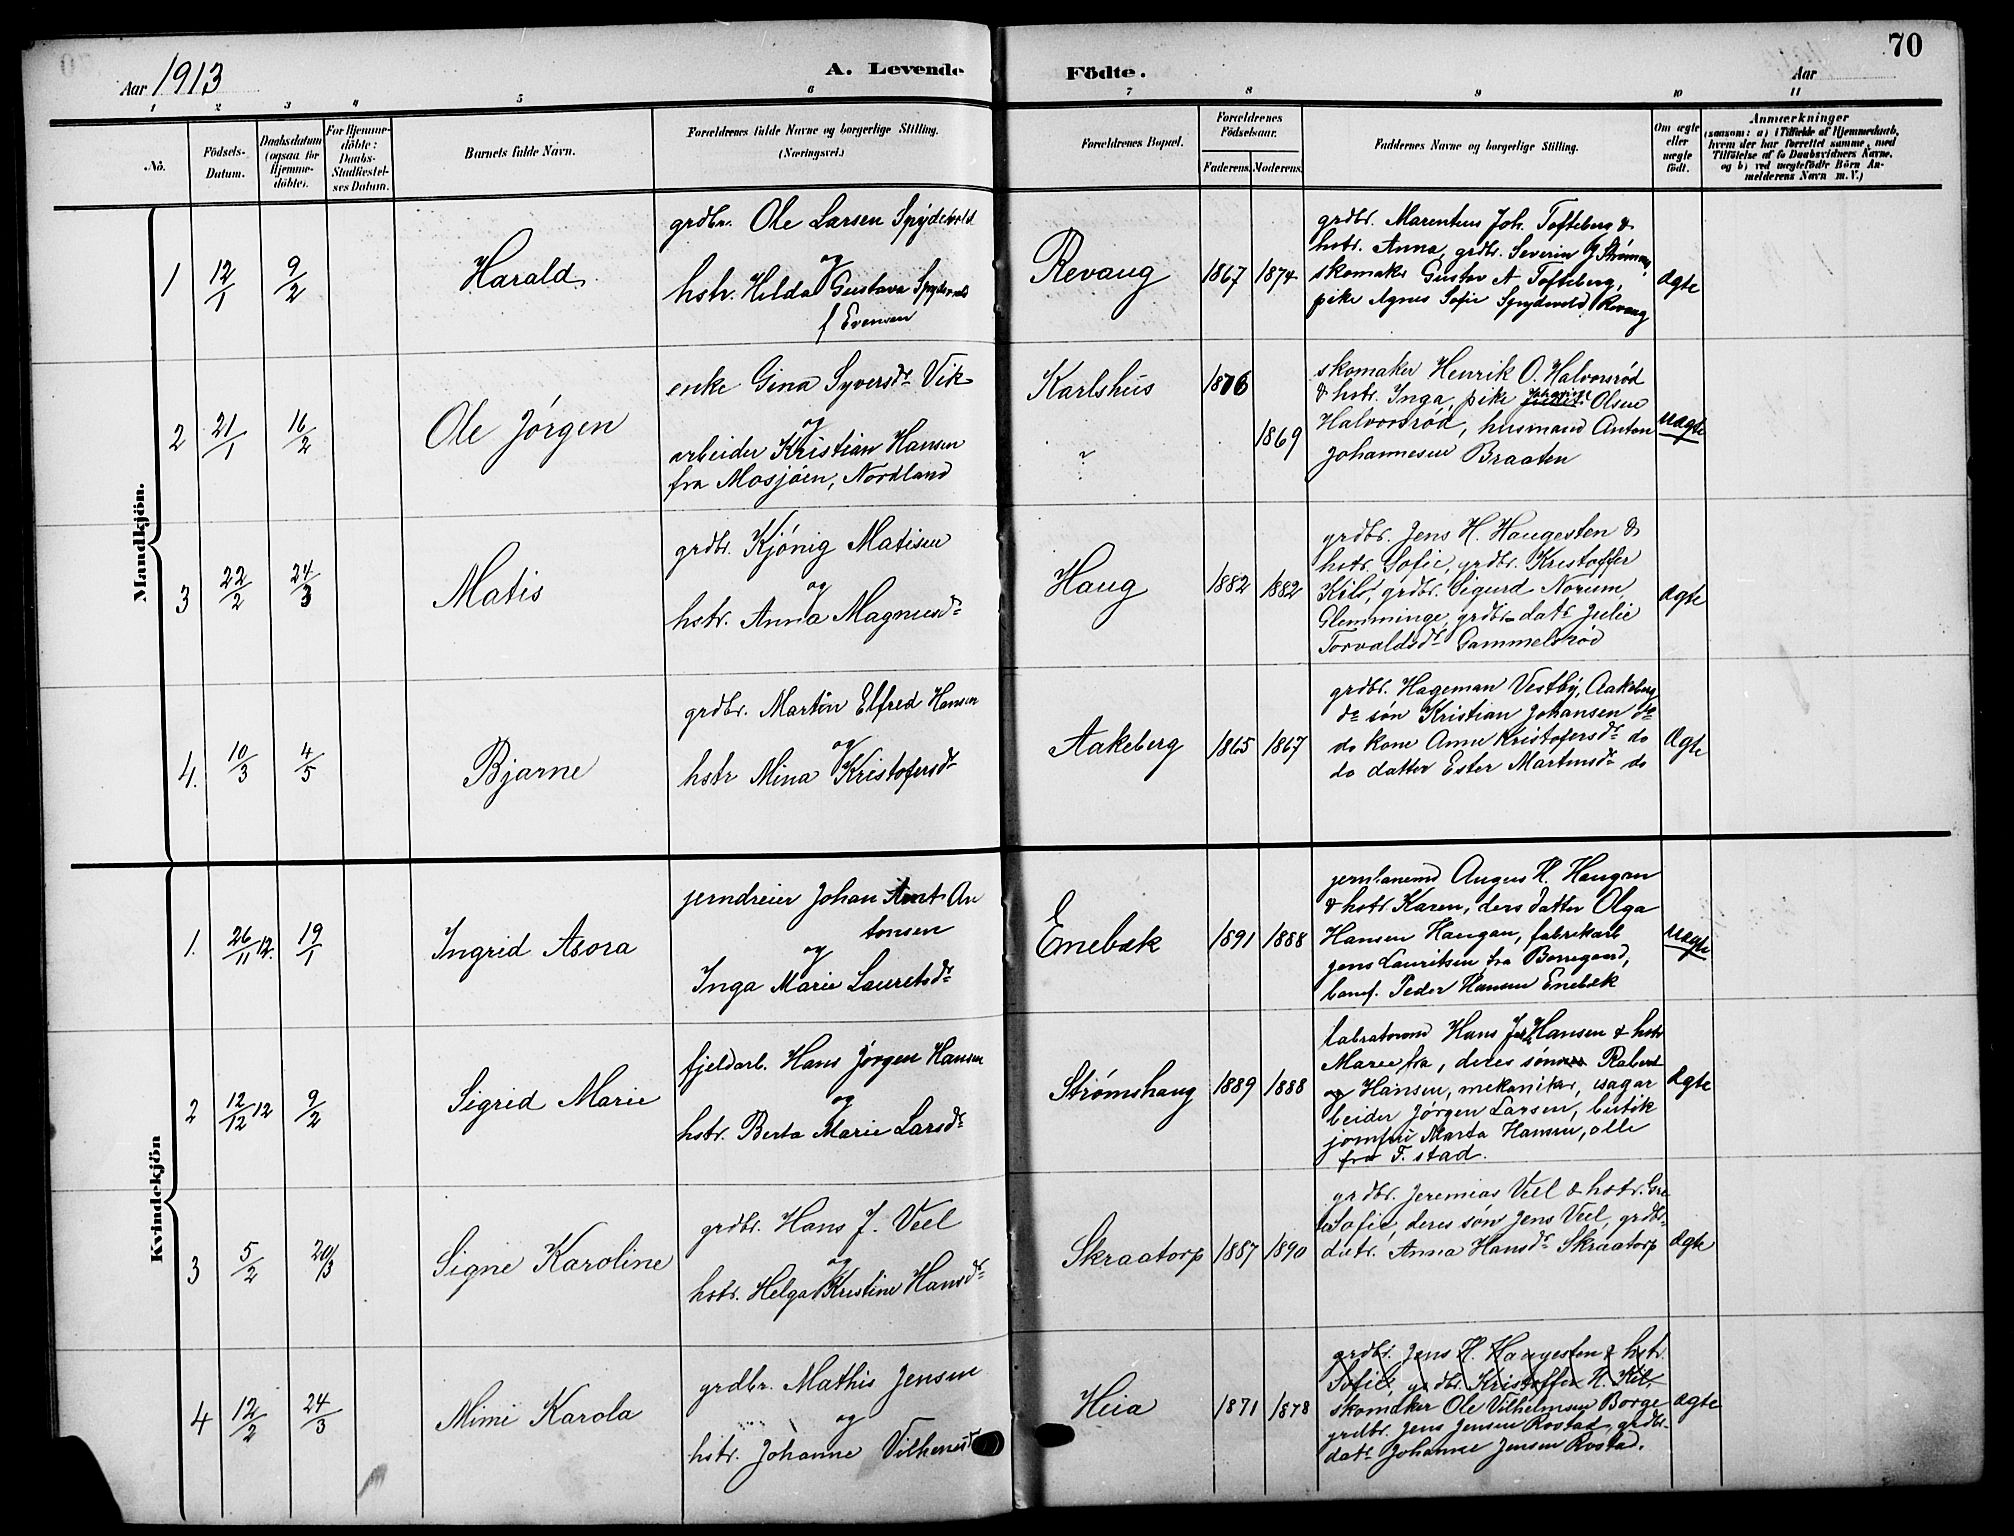 70
Aar 1913
A. Levende Födte.
Aar
1 2 3 4 5 6 7 8 9 10 11
Nö.
Födsels-
Datum.
Daabsdatum
(ogsaa for
Hjemme-
döbte).
For Hjemme-
döbte:
Daabs-
Stadfæstel-
ses Datum.
Barnets fulde Navn.
Forældrenes fulde Navne og borgerlige Stilling.
(Næringsvei.)
Forældrenes Bopæl.
Forældrenes
Födselsaar.
Faderens. Moderens.
Faddernes Navne og borgerlige Stilling.
Om ægte
eller
uægte
födt.
Anmærkninger
(saasom: a) i Tilfælde af Hjemmedaab,
hvem der har forrettet samme, med
Tilföielse af to Daabsvidners Navne,
og b) ved uægtefödte Börn An-
melderens Navn m. V.)
Mandkjön.
1
12/1
9/2
Harald
grdbr. Ole Larsen Spydevold
og
hstr. Hilda Gustava Spydevold
f Evensen
Revaug
1867
1874
grdbr. Marentius Joh. Tofteberg &
hstr. Anna, grdbr. Severin
skomaker Gustav A Tofteberg,
pike Agnes Sofie Spydevold, Revaug
ægte
2
21/1
16/2
Ole Jörgen
enke Gina Syversdr Vik
og
arbeider Kristian Hansen
fra Mosjöen, Nordland
Karlshus
?
1876
1869
skomaker Henrik O. Halvorsrød
& hstr. Inga, pike Olsen
Halvorsrød, husmand Anton
Johannesen Braaten
uægte
3
22/2
24/3
Matis
grdbr. Kjönig Matisen
og
hstr. Anna Magnusdr
Haug
1882
1882
grdbr. Jens H. Haugesten &
hstr. Sofie, grdbr. Kristoffer
Kil, grdbr. Sigurd Norum,
Glemminge, grdbr. datr Julie
Torvaldsdr Gammelsrød
ægte
4.
10/3
4/5
Bjarne
grdbr. Martin Elfred Hansen
og
hstr Mina Kristofersdr
Aakeberg
1865
1867
grdbr. Hageman Vestby, Aakeberg
do søn Kristian Johansen do
do kone Anne Kristofersdr do
do datter Ester Martinsdr do
ægte
Kvindekjön
1.
26/11 12.
19/1
Ingrid Asora
jerndreier Johan An
tonsen
og
Inga Marie Lauritsdr
Enebæk
1891
1888
jernbanemd August H. Haugan
& hstr Karen, ders datter Olga
Hansen Haugan, fabrikarb
Jens Lauritsen fra Borregaard,
banef. Peder Hansen Enebæk
uægte
2
12/12 12
9/2
Sigrid Marie
fjeldarb. Hans Jörgen Hansen
og
hstr. Berta Marie Larsdr
Strømshaug
1889
1888
Hans Hansen & hstr
Marie fra, deres søn
og Hansen, mekaniker, sagar
beider Jörgen Larsen, butik
jomfru Marta Hansen, alle
fra F. stad.
ægte
3
5/2
20/3
Signe Karoline
grdbr. Hans J. Veel
og
hstr. Helga Kristine Hansdr
Skraatorp
1887
1890
grdbr. Jeremias Veel & hstr. Gre
Sofie, deres søn Jens Veel, grdbr.
datr. Anna Hansdr Skraatorp
ægte
4
12/2
24/3
Mimi Karola
grdbr. Mathis Jensen
og
hstr. Johanne
Heia
1871
1878
grdbr. Jens H. Haugesten & hstr.
Sofie, grdbr. Kristoffer H. Kil,
skomaker Ole Vilhelmsen Borge
grdbr. Jens Jensen Rostad, grdbr.
datr Johanne Jensen Rostad.
ægte